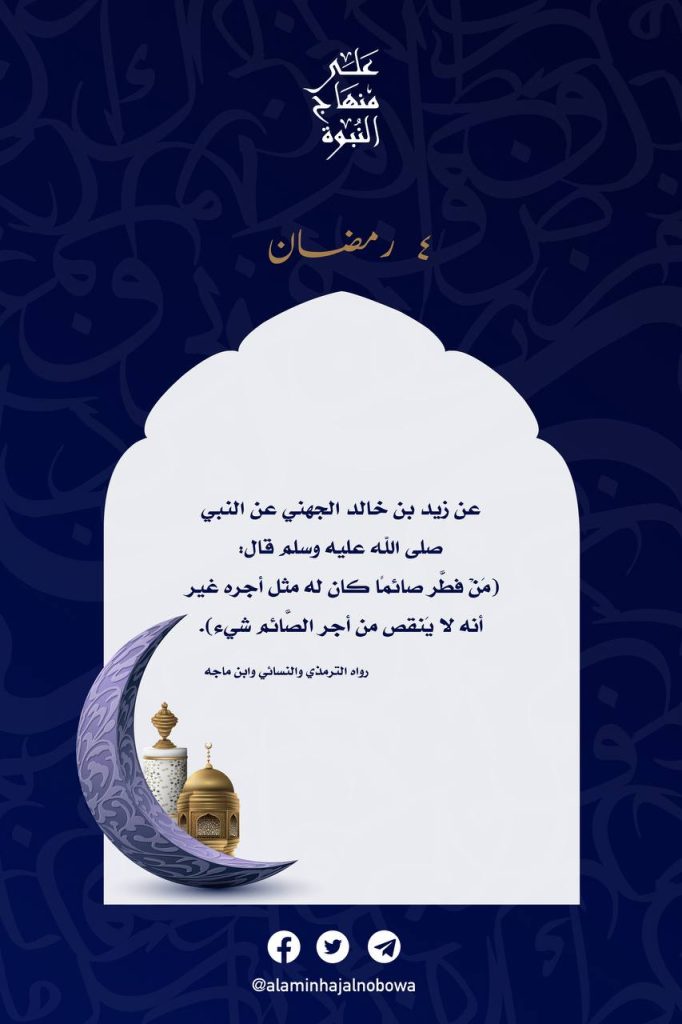 عَلَى
مِنهَاج
النُبوة
٤ رمضان
عن زيد بن خالد الجهني عن النبي
صلى الله عليه وسلم قال:
(مَنْ فطَّر صائمًا كان له مثل أجره غير
أنه لا يَنقص من أجر الصَّائم شيء).
رواه الترمذي والنسائي وابن ماجه
@alaminhajalnobowa